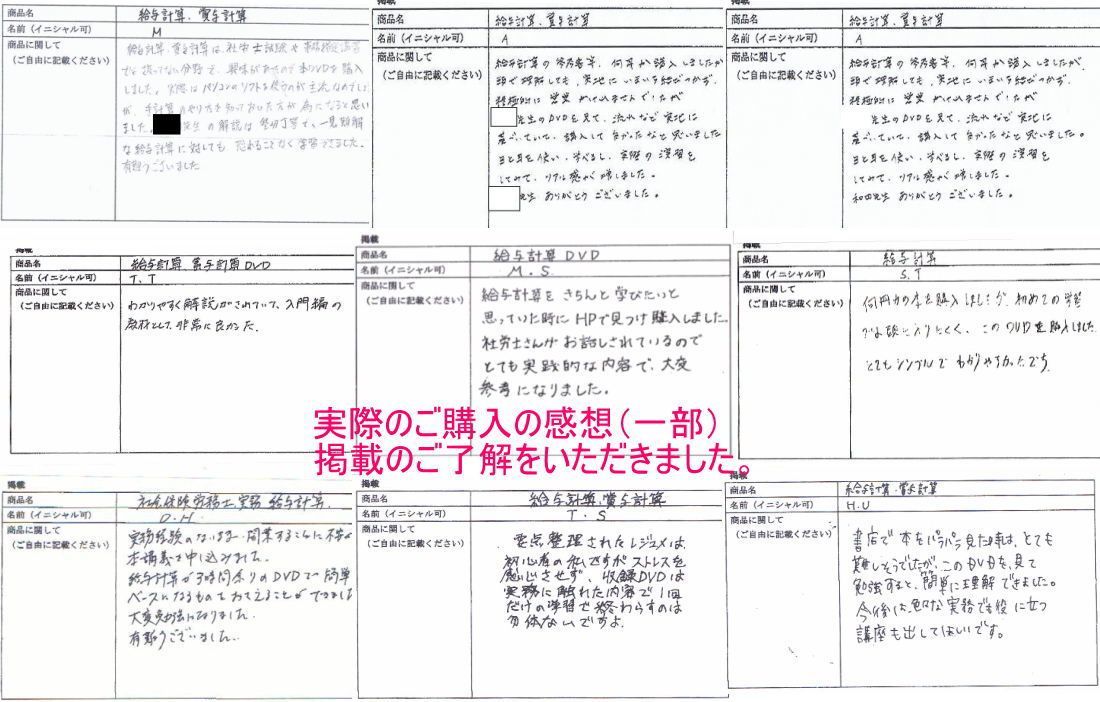 商品名
給与計算、賞与計算
名前（イニシャル可）
M
商品に関して
（ご自由に記載ください）
給与計算、賞与計算は、社労士試験や
ない分野で、興味があったので本DVDを購入
しました。実際はパソコンのソフトを使うのが主流なのでしょう
が、手計算のやり方を知っておいた方が為になると思い
ました。 先生の解説は堅切丁寧で、一見難解
な給与計算に対しても、恐れることなく学習できました。
有難うございました
掲載
商品名
給与計算、賞与計算
名前（イニシャル可）
A
商品に関して
（ご自由に記載ください）
給与計算の参考書等、何冊か購入しましたが
頭で理解しても、実地にいまいち結びつかず、
積極的に営業かけれませんでしたが
先生のDVDを見て、流れなど実地に
基づいていて、購入して良かったなと思いました
目と耳を使い、学べるし、実際の演習を
してみて、リアル感が増しました。
先生ありがとうございました。
掲載
商品名
給与計算、賞与計算
名前（イニシャル可）
A
商品に関して
（ご自由に記載ください）
給与計算の参考書等、何冊か購入しましたが、
頭で理解しても、実地にいまいち結びつかず、
積極的に営業かけれませんでしたが
先生のDVDを見て、流れなど実地に
基づいていて、購入して良かったなと思いました。
目と耳を使い、学べるし、実際の演習を
してみて、リアル感が増しました。
和田先生ありがとうございました。
掲載
商品名
給与計算、賞与計算DVD
名前（イニシャル可）
T、T
商品に関して
（ご自由に記載ください）
わかりやすく解説がされていて、入門編の
教材として非常に良かった。
掲載
商品名
給与計算DVD
名前（イニシャル可）
M.S.
商品に関して
（ご自由に記載ください）
給与計算をきちんと学びたいと
思っていた時にHPで見つけ購入しました。
社労士さんがお話しされているので
とても実践的な内容で、大変
参考になりました。
掲載
商品名
給与計算
名前（イニシャル可）
S.T
商品に関して
（ご自由に記載ください）
何冊かの本を購入しましたが、初めての学習
では頭に入りにくく、このDVDを購入しました
とてもシンプルでわかりやすかったです
実際のご購入の感想（一部）
掲載のご了解をいただきました。
掲載
商品名
社会保険労務士実務 給与計算、
名前（イニシャル可）
O.H.
商品に関して
（ご自由に記載ください）
実務経験のないまま、開業することに不安で
本講義を申し込みました。
給与計算が3時間余りのDVDで、簡単
ベースになるものをおさえることができました
大変勉強になりました。
有難うございました。
掲載
商品名
給与計算、賞与計算
名前（イニシャル可）
T.S
商品に関して
（ご自由に記載ください）
要点整理されたレジュメは、
初心者の私ですがストレスを
感じさせず、収録DVDは
実務に触れた内容で1回
だけの学習で終わらすのは
勿体ないですよ
掲載
商品名
給与計算、賞与計算
名前（イニシャル可）
H.U
商品に関して
（ご自由に記載ください）
書店で本をパラパラ見た時は、とても
難しそうでしたが、このDVDを見て
勉強すると、簡単に理解できました。
今後は色々な実務でも役に立つ
講座も出してほしいです。